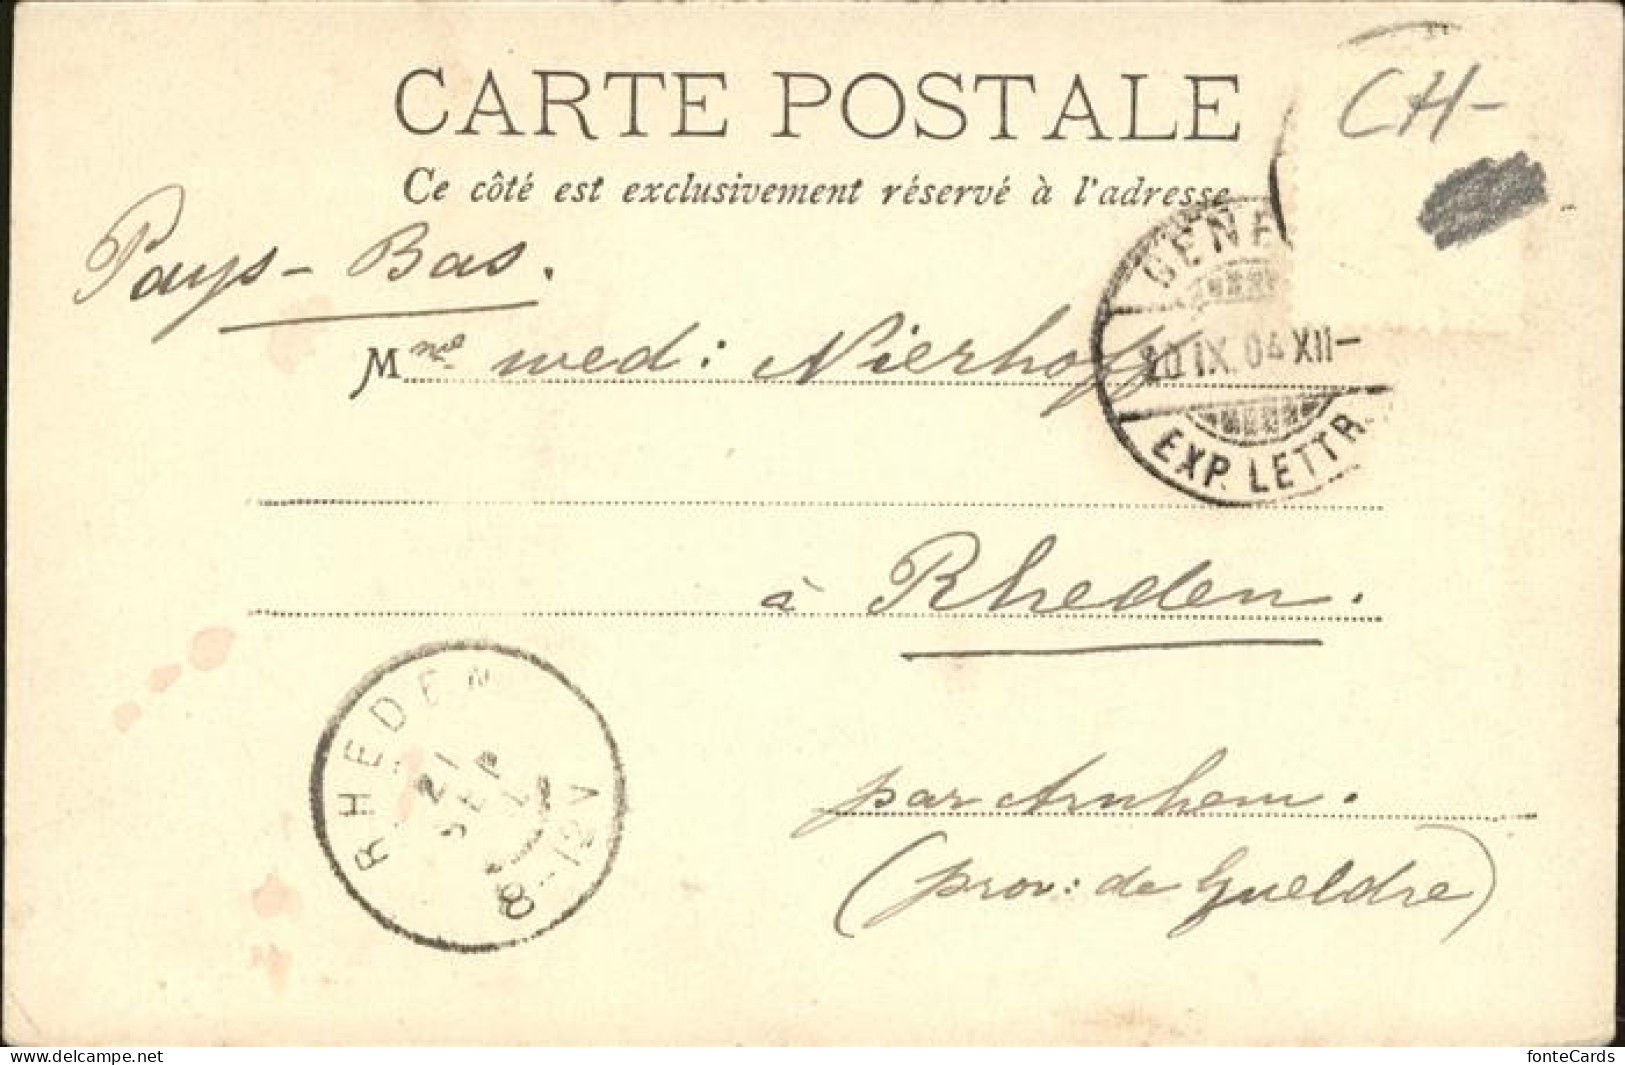 CARTE POSTALE
CH-
Ce côté est exclusivement réservé à l'adresse
Pays-Bas.
GENE
Mme wed: Nierhoff
20 IX. 04 XII-
EXP. LETTR.
à Rheden.
RHEDEN
21
SEP
8-12V
par Arnhem.
(prov: de Gueldre)
delcampe.net
fonteCards